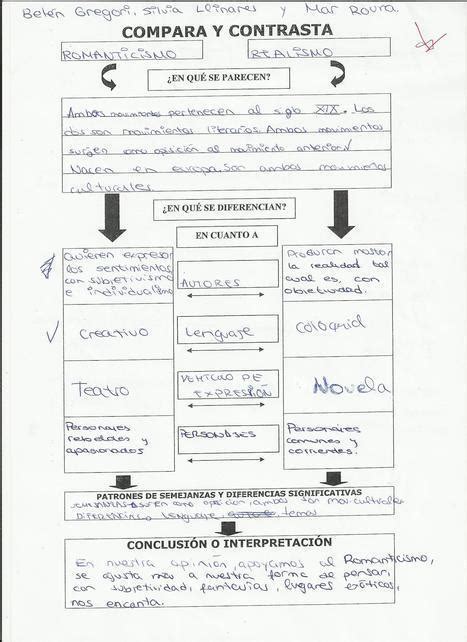 Belén Gregori, Silvia Llinares y Mar Roura.
COMPARA Y CONTRASTA
ROMANTICISMO REALISMO
¿EN QUÉ SE PARECEN?
Ambos movimientos pertenecen al siglo XIX. Los
dos son movimientos literarios. Ambos movimientos
surgen como oposición al movimiento anterior.
Nacen en europa. Son ambos movimientos
culturales.
¿EN QUÉ SE DIFERENCIAN?
EN CUANTO A
Quieren expresar
los sentimientos
con subjetivismo
e individualismo
AUTORES
Procuran mostrar
la realidad tal
cual es, con
objetividad.
Creativo
Lenguaje
Coloquial
Teatro
VEHICULO DE
EXPRESIÓN
Novela
Personajes
rebeldes y
apasionados
PERSONAJES
Personajes
comunes y
corrientes.
PATRONES DE SEMEJANZAS Y DIFERENCIAS SIGNIFICATIVAS
como oposición, ambos son mov. culturales
DIFERENCIA: LENGUAJE, temas
CONCLUSIÓN O INTERPRETACIÓN
En nuestra opinión, apoyamos al Romanticismo,
se ajusta más a nuestra forma de pensar,
con subjetividad, fantasías, lugares exóticos,
nos encanta.